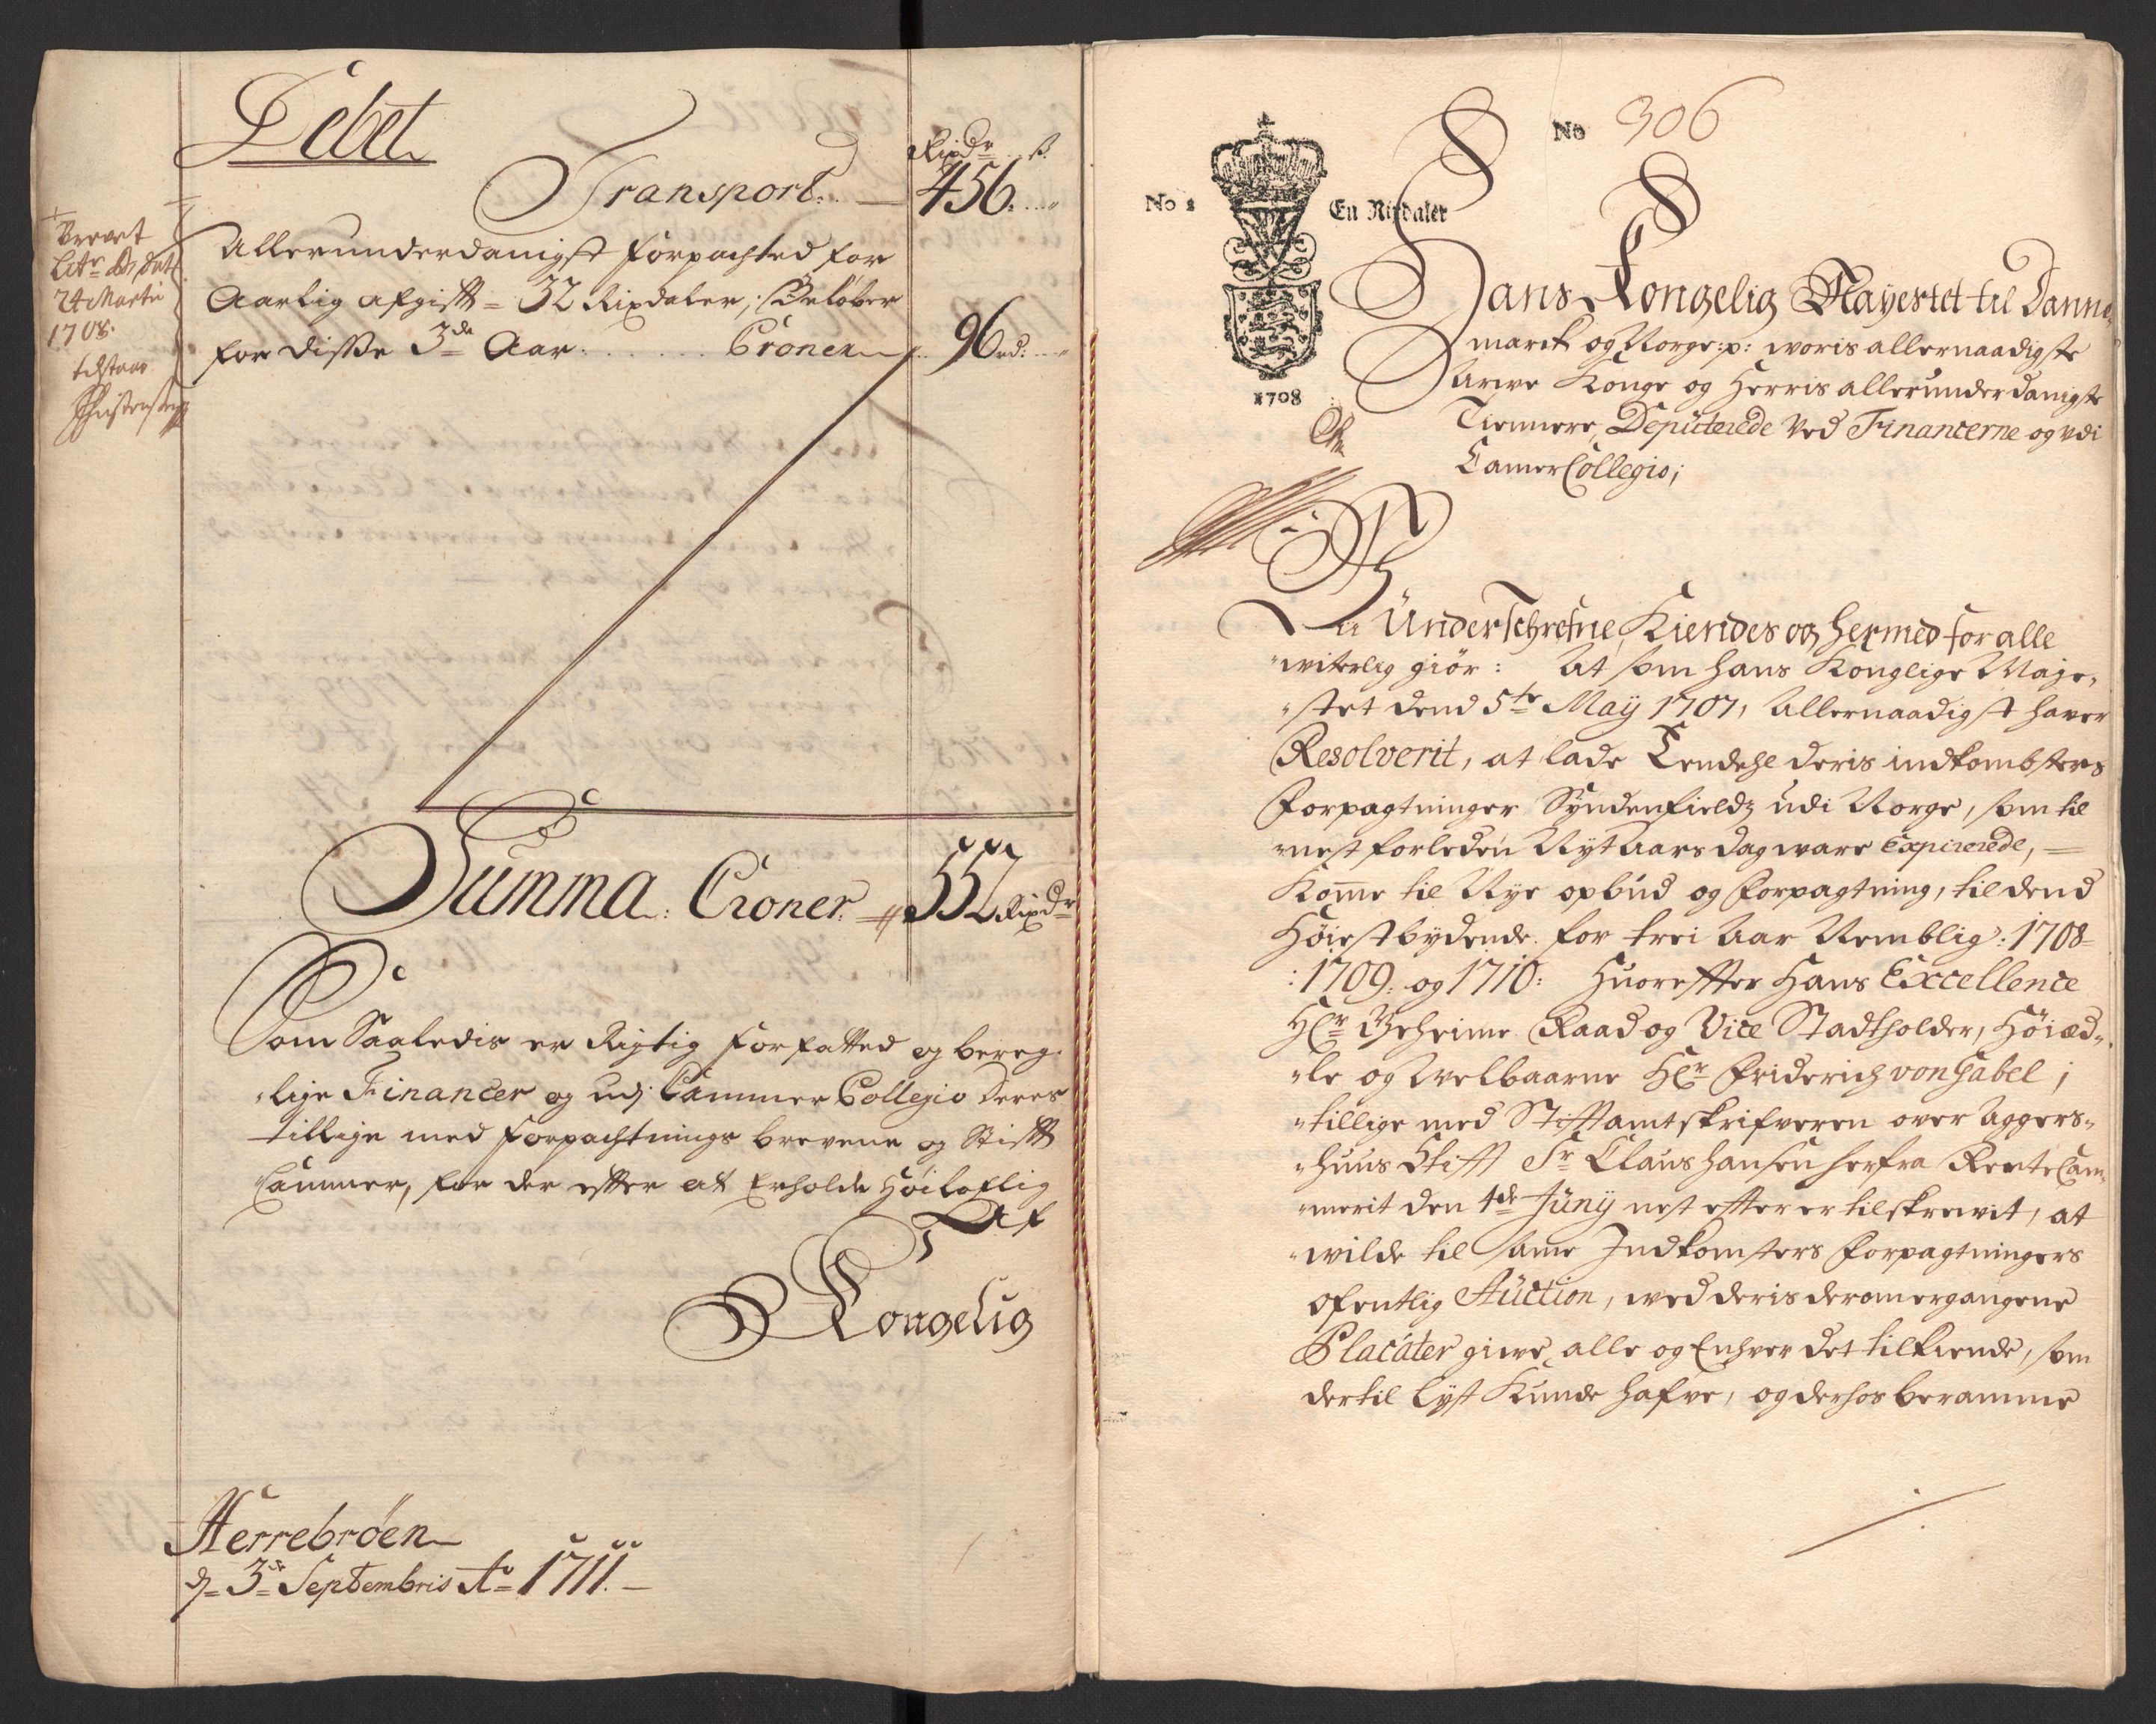 Debet
Rixdr ß.
Transport. 456.
Brevet
Litr D, dat
24 Martii
1708.
Allerunderdanigst forpachted for
Aarlig afgifft = 32 Rixdaler, Beløber
for disse 3de Aar. Croner 96 rd:
Summa. Croner. 552 Rixdr
Som Saaledis er Rigtig forfatted og bereg¬
lige Financer og udj Cammer Collegio deres
tillige med forpachtnings brevene og Stifft
Cammer, for der effter at Erholde høiloflig
Af
Kongelig
Herrebröen
d. 3de Septembris Ao 1711.
No 306
No 2 En Rixdaler
1708
Hans Kongelig Mayestet til Danne¬
marck og Norge :p: woris allernaadigste
Arwe Konge og Herris allerunderdanigste
Tiennere, Deputerede ved Financerne og udi
Camer Collegio;
Wi Underschrefne Kiendes og hermed for alle
witerlig giør: At som hans Konglige Maje¬
stet dend 5te May 1707, allernaadigst hafver
Resolverit, at lade Tendehl deris indkombsters
Forpagtninger Syndenfields udi Norge, som til
nest forleden Nyt Aars dag ware Expirerede,
Kom̅e til Nye opbud og Forpagtning, til dend
Høiestbydende for trei Aar Nemblig: 1708
: 1709: og 1710: Huoreffter Hans Excellence
Hr Geheime Raad og Vice Stadtholder, Høiæd¬
le og Welbaarne Hr Friderich von Gabel;
tillige med Stifftamtskrifveren over Aggers¬
huus Stifft Sr Claus Hansen herfra Rente Cam¬
merit den 4de Juny nest effter er tilskrevit, at
wilde til Same Indkomsters Forpagtningers
Ofentlig Auction, wed deris derom ergangene
Placater giwe alle og Enhver det tilkiende, som
dertil lyst Kunde hafve, og derhos beramme